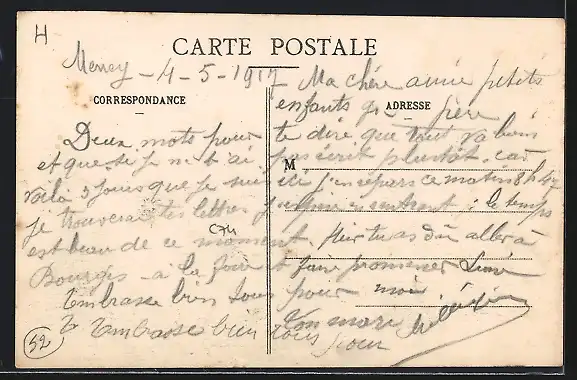 H
CARTE POSTALE
CORRESPONDANCE
ADRESSE
M
4-5-1917
Ma chère amie petits
enfants père
Deux mots pour te dire que tout va bien
et que si je ne t'ai pas écrit plus tôt, car
voilà 3 jours que je suis ici j'en repars ce matin 8h47
je trouverai tes lettres en rentrant : le temps
est beau de ce moment, hier tu as dû aller à
Bourges à la foire faire promener
C74
Embrasse bien tous pour moi
Ton mari
Embrasse bien tous pour
52